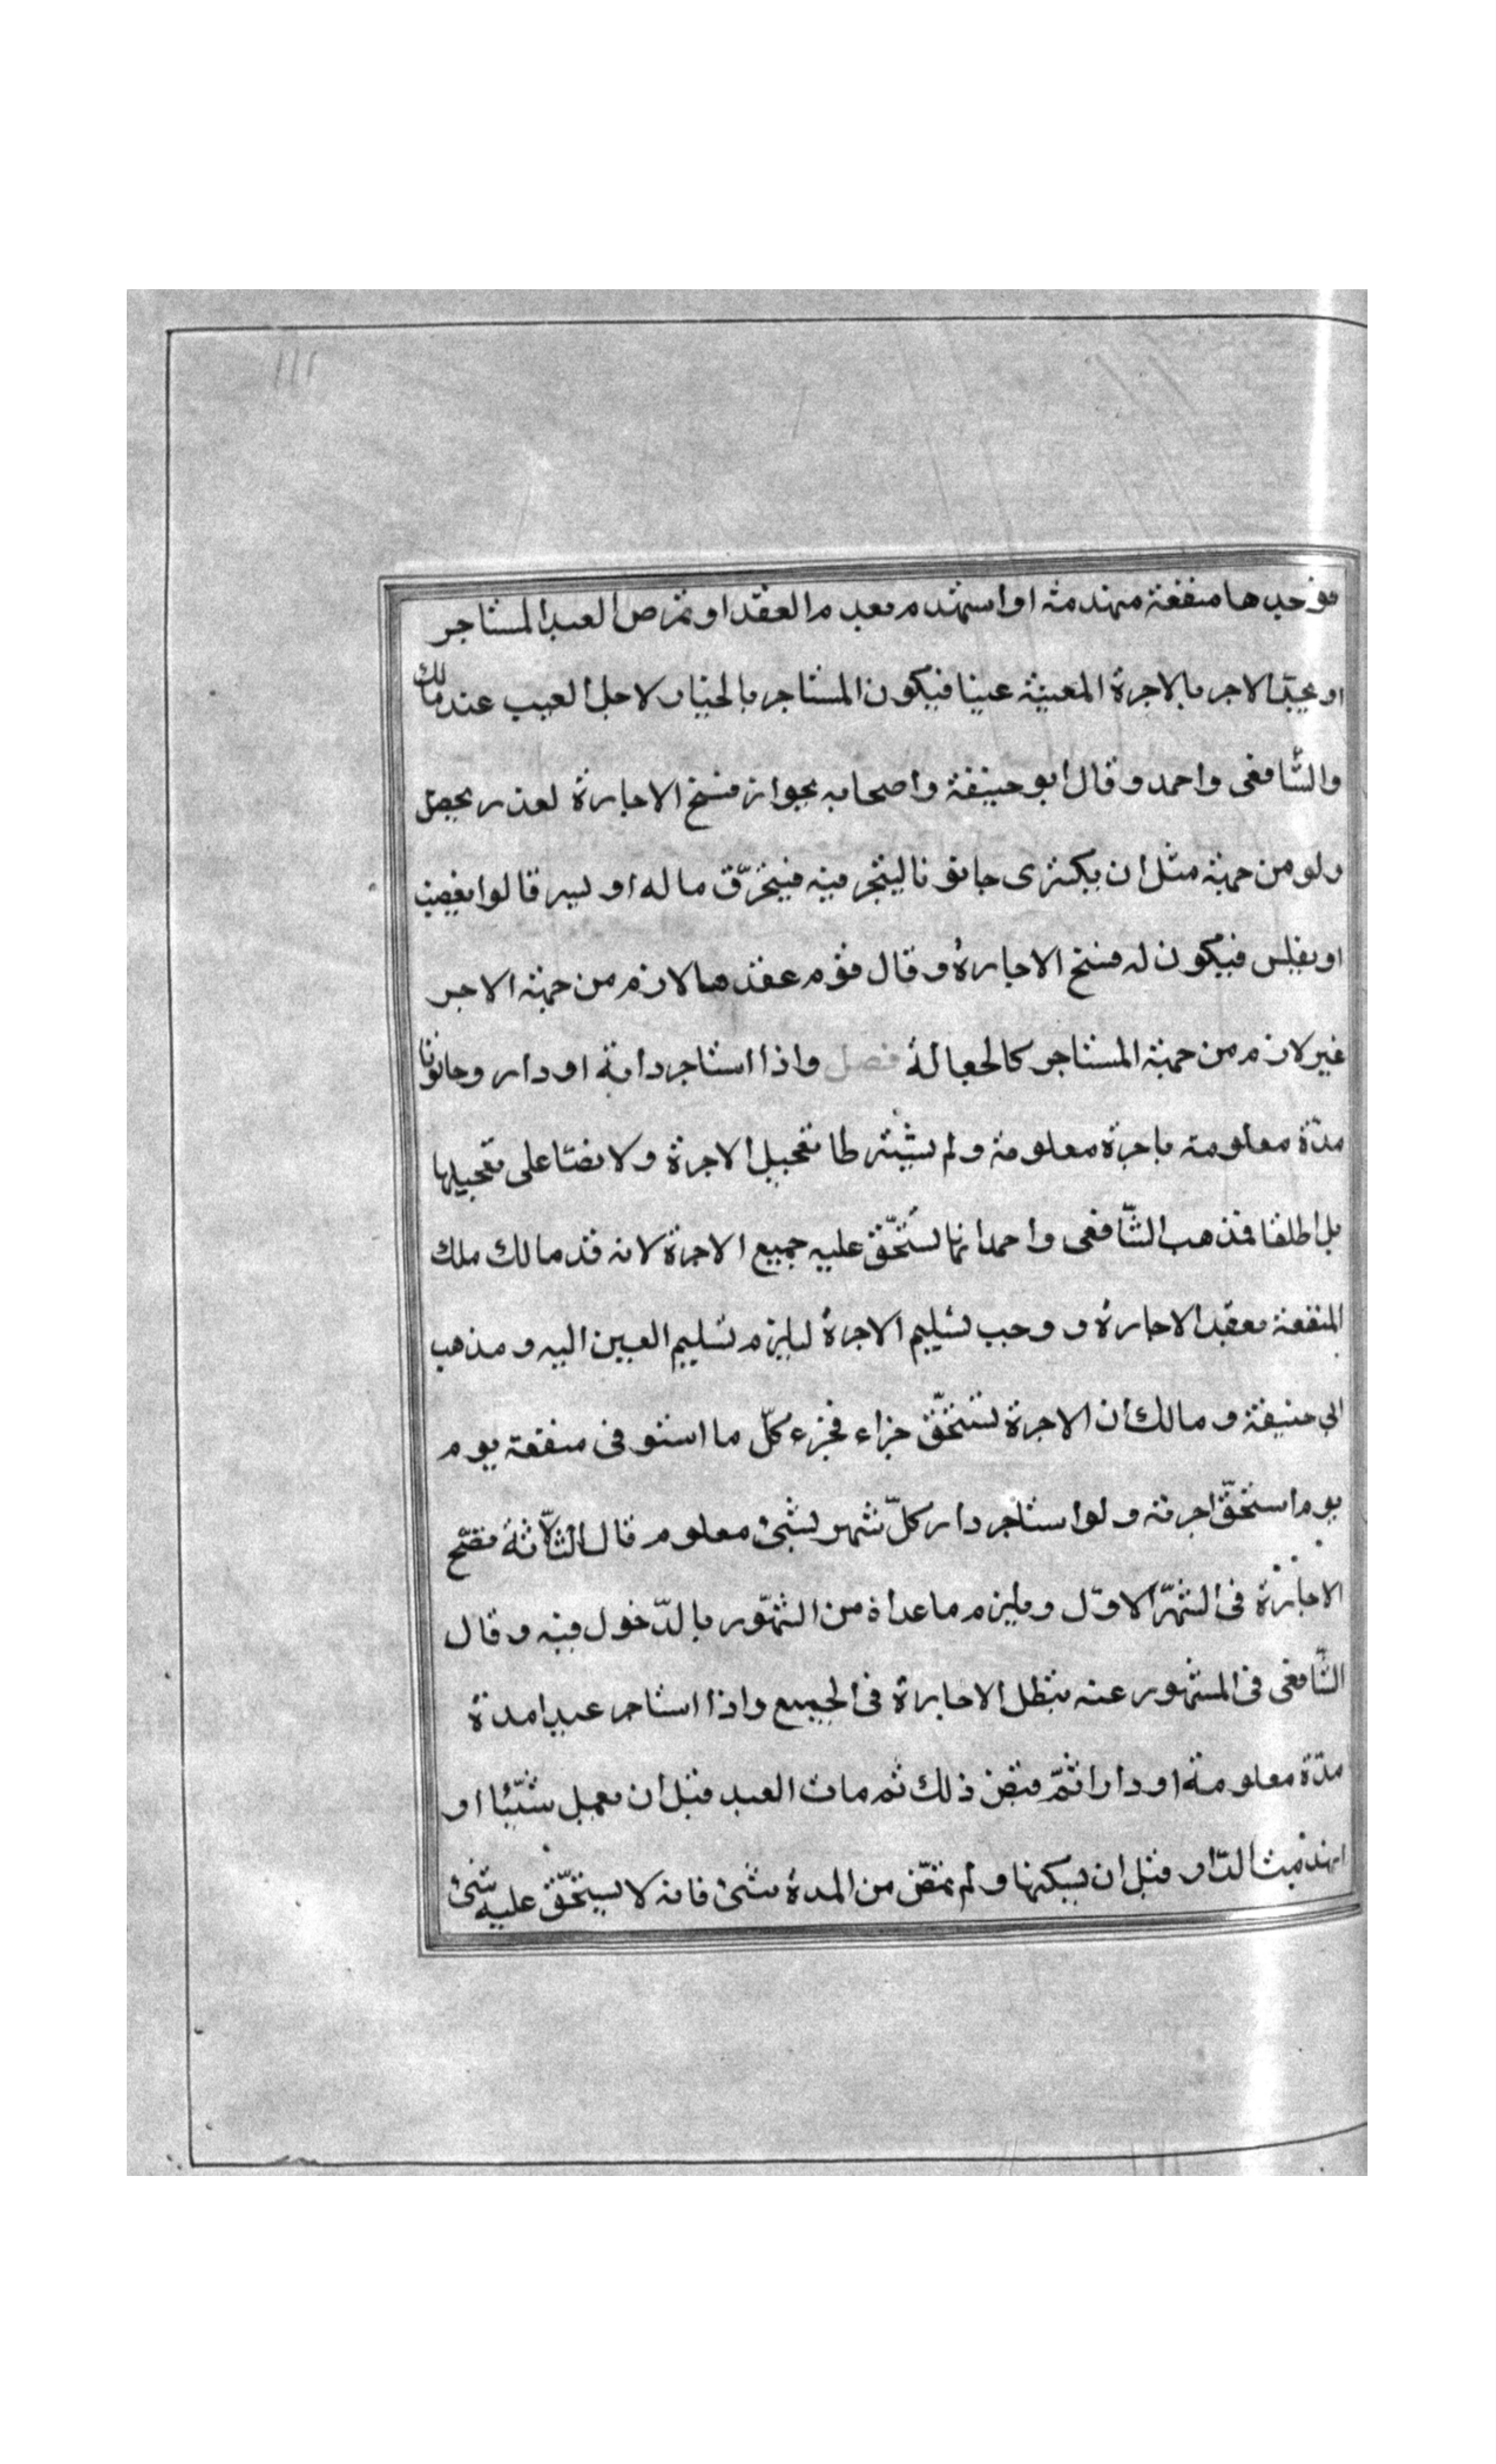 فوجدها منفعة منهدمة او استهدم بعد م العقد او تمرض العبد المستاجر
او يجد الاجر بالاجرة المعينة عيبا فيكون المستاجر بالخيار لاجل العيب عند مالك
والشّافعى واحمد وقال ابو حنيفة واصحابه بجواز فسخ الاجارة لعذر يحصل
ولو من جهته مثل ان يكترى حانوتا ليتجر فيه فيحرّق ماله او يسرقا لوا بغصب
او يفلس فيكون له فسخ الاجارة وقال قوم عقدها لازم من جهة الاجر
غير لازم من جهة المستاجر كالجعالة فصل واذا استاجر دابة او دار وحانوتا
مدّة معلومة باجرة معلومة ولم يشترطا تعجيل الاجرة ولا نصّا على تعجيلها
بل اطلقا فذهب الشّافعى واحمد انما تستحّق عليه جميع الاجرة لانه قد مالك ملك
المنفعة بعقد الاجارة و وجب تسليم الاجرة ليلزم تسليم العين اليه و مذهب
ابى حنيفة و مالك ان الاجرة تستحّق جزاء فجزء كلّ ما استوفى منفعة يوم
يوم استحّق اجرته ولو استاجر دار كلّ شهر بشئ معلوم قال الثلاثة فتصّح
الاجارة فى الشّهر الاوّل ويلزم ما عداه من الشّهور بالدّخول فيه وقال
الشّافعى فى المشهور عنه تبطل الاجارة فى الجميع واذا استاجر عبدا مدة
مدّة معلومة او دارا ثمّ قبض ذلك ثم مات العبد قبل ان يعمل شيّئا او
انهدمت الدّار قبل ان يسكنها ولم تمض من المدة شئ فانه لا يستحّق عليه شئ